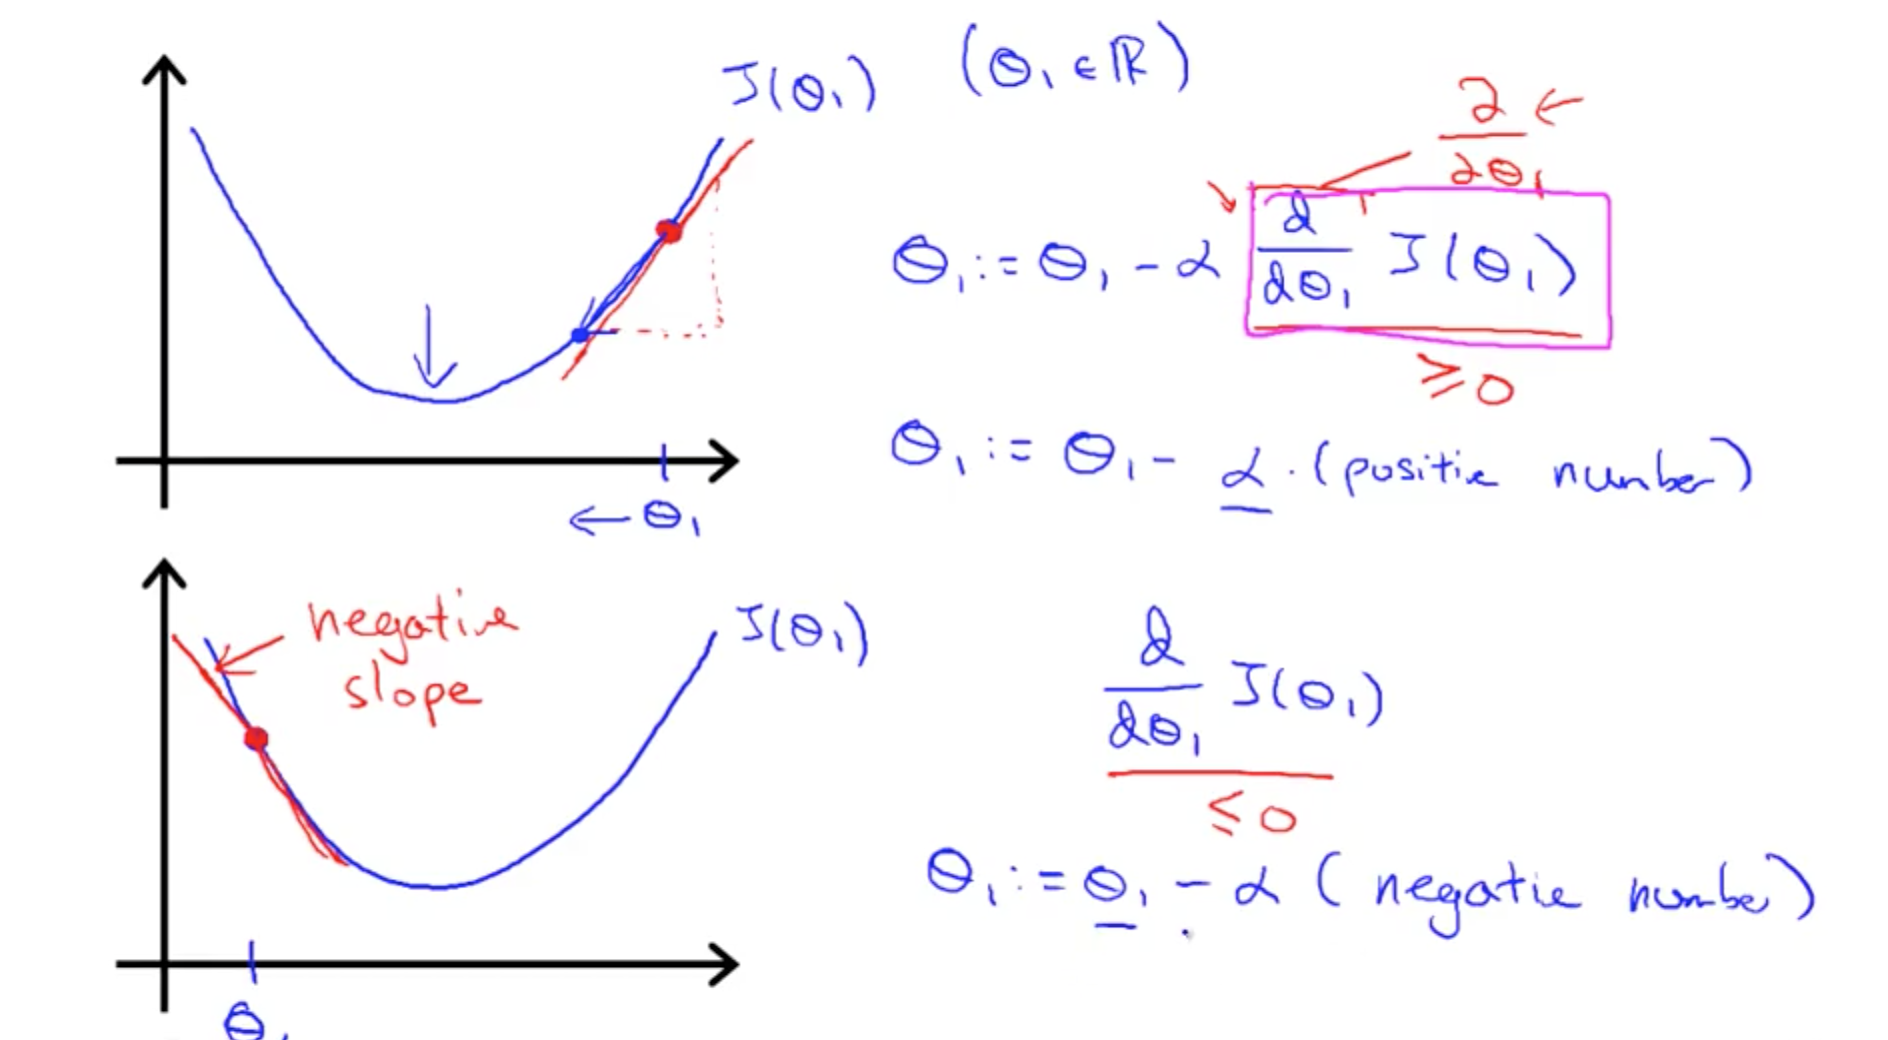 J(θ₁) (θ₁ ∈ ℝ)
∂/∂θ₁ ←
θ₁ := θ₁ - α d/dθ₁ J(θ₁)
≥ 0
θ₁ := θ₁ - α · (positive number)
← θ₁
negative
slope
J(θ₁)
d/dθ₁ J(θ₁)
≤ 0
θ₁ := θ₁ - α (negative number)
θ₁